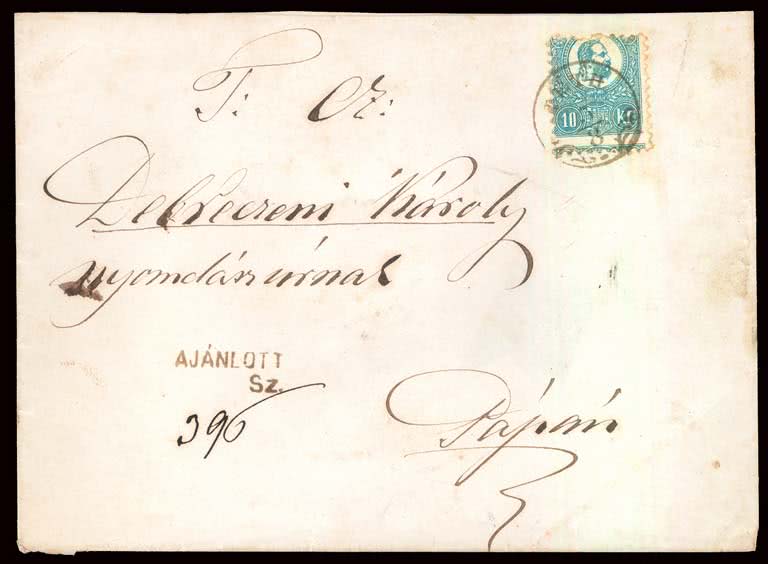 T: Cz:
Debreczeni Károly
nyomdász úrnak
AJÁNLOTT
Sz.
396
Pápán
10 Kr